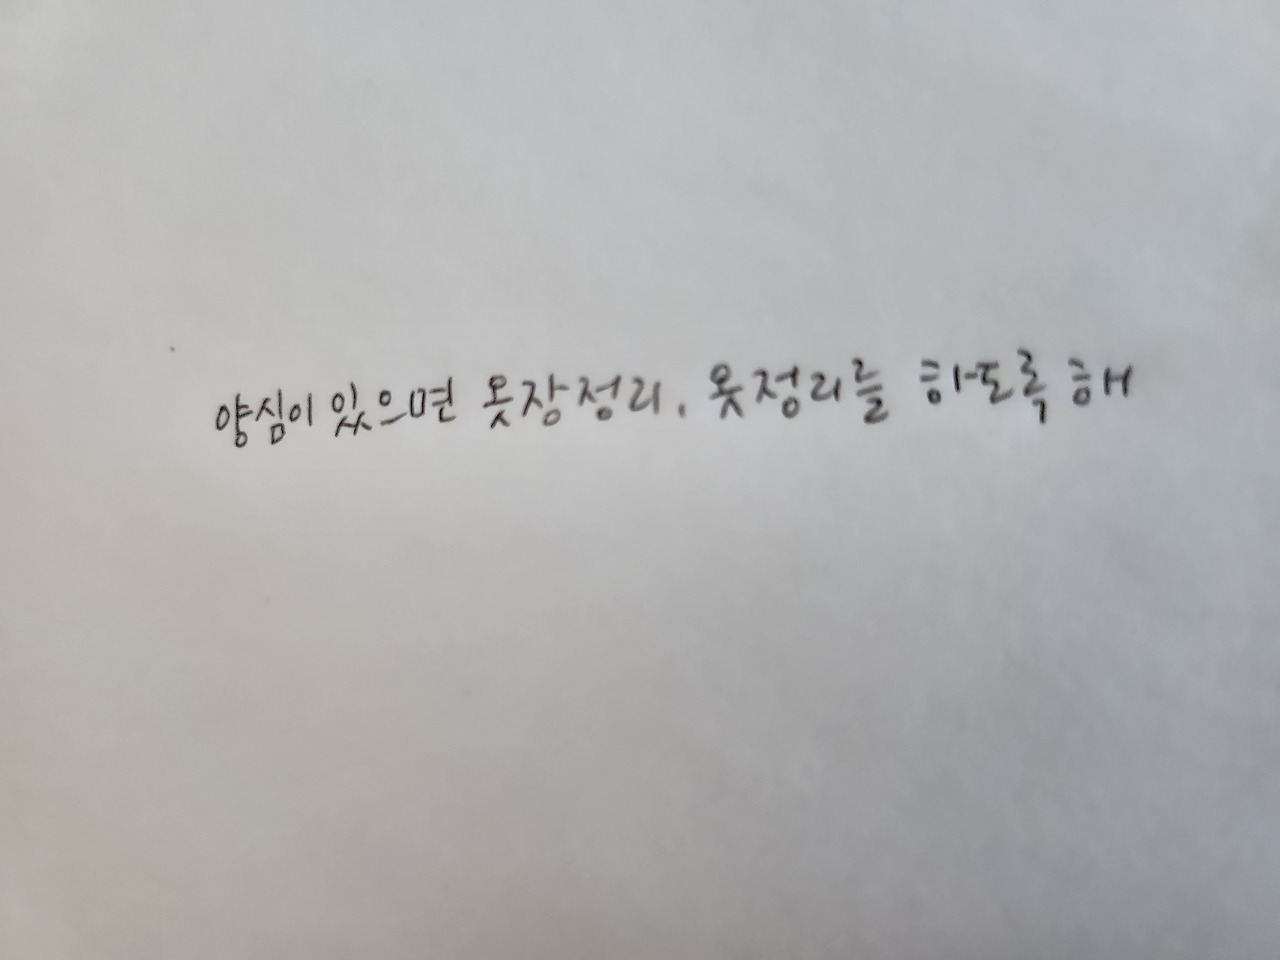 양심이 있으면 옷장정리, 옷정리를 하도록 해